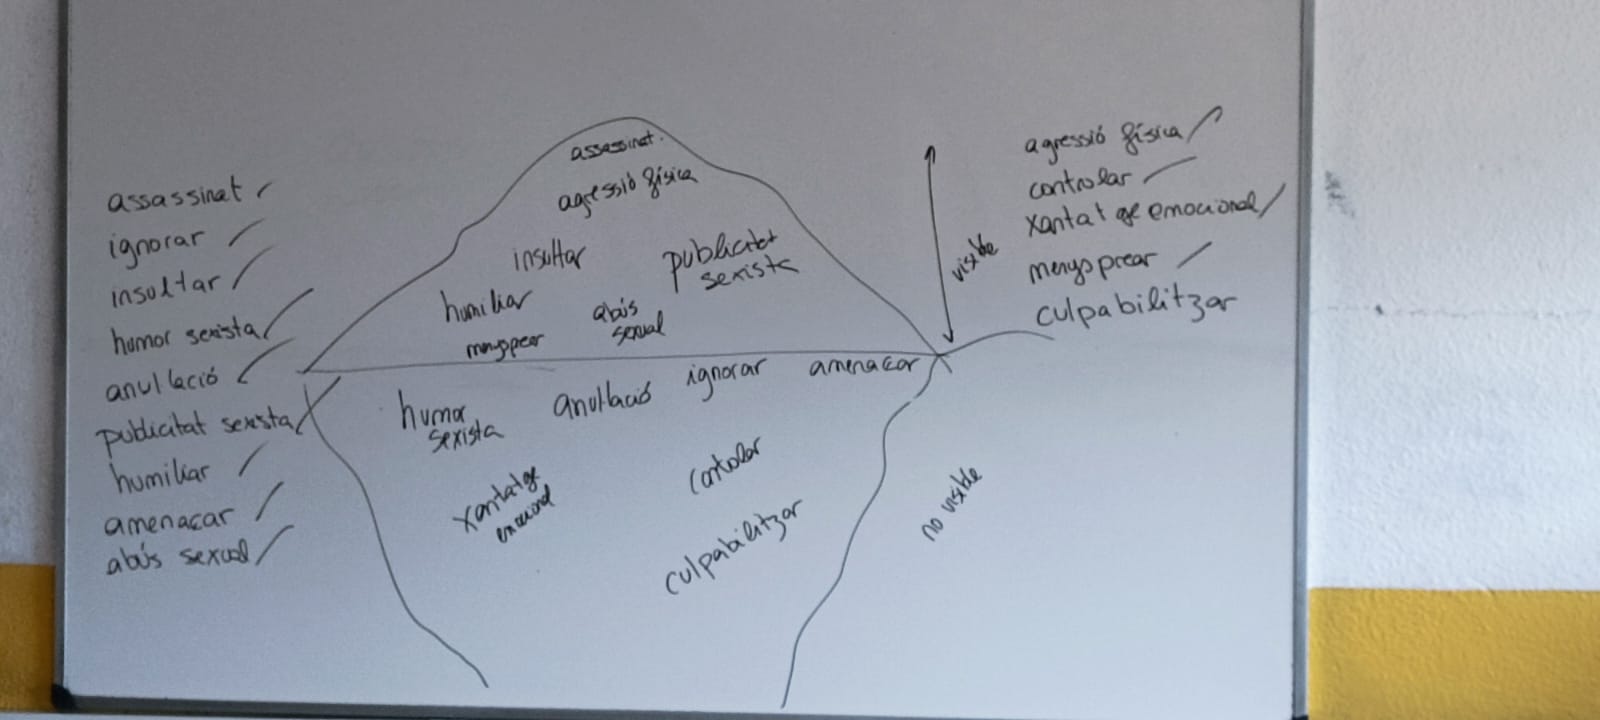 assassinat
ignorar
insultar
humor sexista
anul·lació
publicitat sexista
humiliar
amenaçar
abús sexual
assassinat.
agressió física
insultar
publicitat
sexista
humiliar
abús
sexual
menysprear
humor
sexista
anul·lació
ignorar
amenaçar
xantatge
emocional
controlar
culpabilitzar
visible
no visible
agressió física
controlar
xantatge emocional
menysprear
culpabilitzar